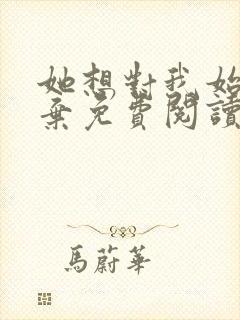 她想對我始
棄免費閱讀
馬蔚華